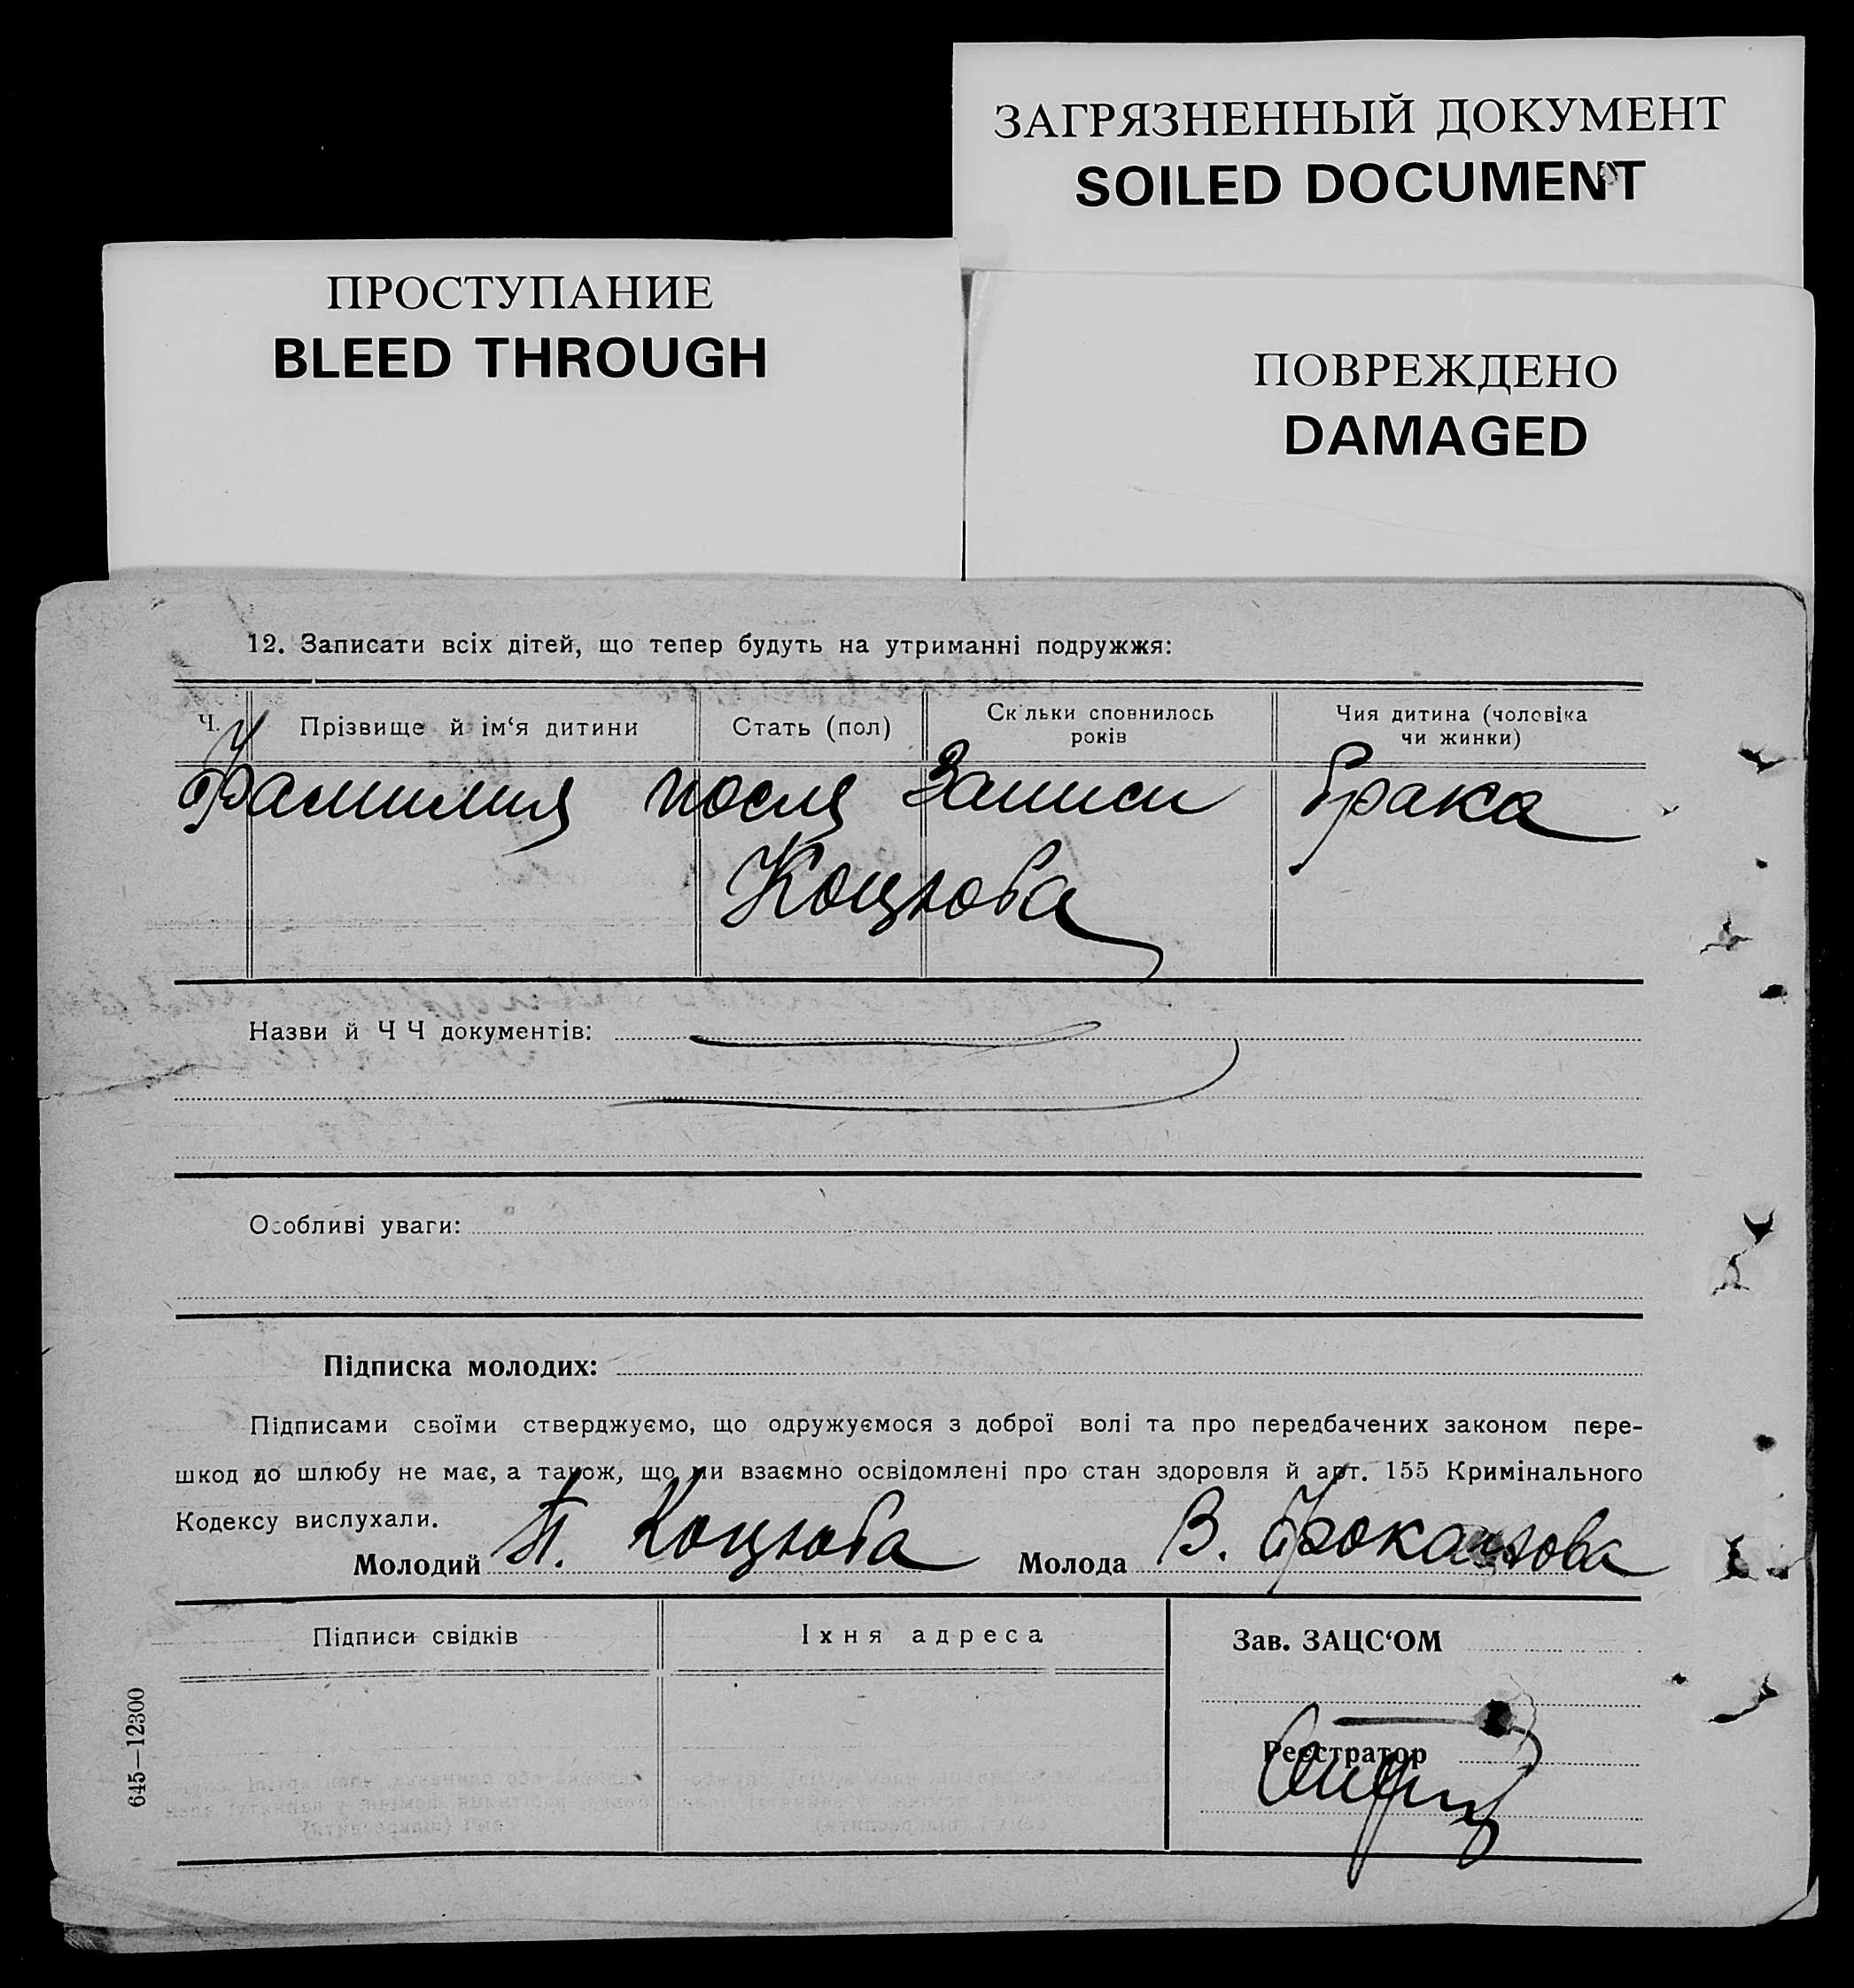 ЗАГРЯЗНЕННЫЙ ДОКУМЕНТ
SOILED DOCUMENT
ПРОСТУПАНИЕ
BLEED THROUGH
ПОВРЕЖДЕНО
DAMAGED
12. Записати всіх дітей, що тепер будуть на утриманні подружжя:
Ч. Прізвище й ім‘я дитини Стать (пол) Скільки сповнилось років Чия дитина (чоловіка чи жинки)
Фамилия после записи брака
Коцюба
Назви й Ч Ч документів:
Особливі уваги:
Підписка молодих:
Підписами своїми стверджуємо, що одружуємося з доброї волі та про передбачених законом пере-
шкод до шлюбу не має, а також, що ми взаємно освідомлені про стан здоровля й арт. 155 Кримінального
Кодексу вислухали.
Молодий П. Коцюба Молода В.
Підписи свідків Їхня адреса Зав. ЗАЦС‘ОМ
Реєстратор
645—12300